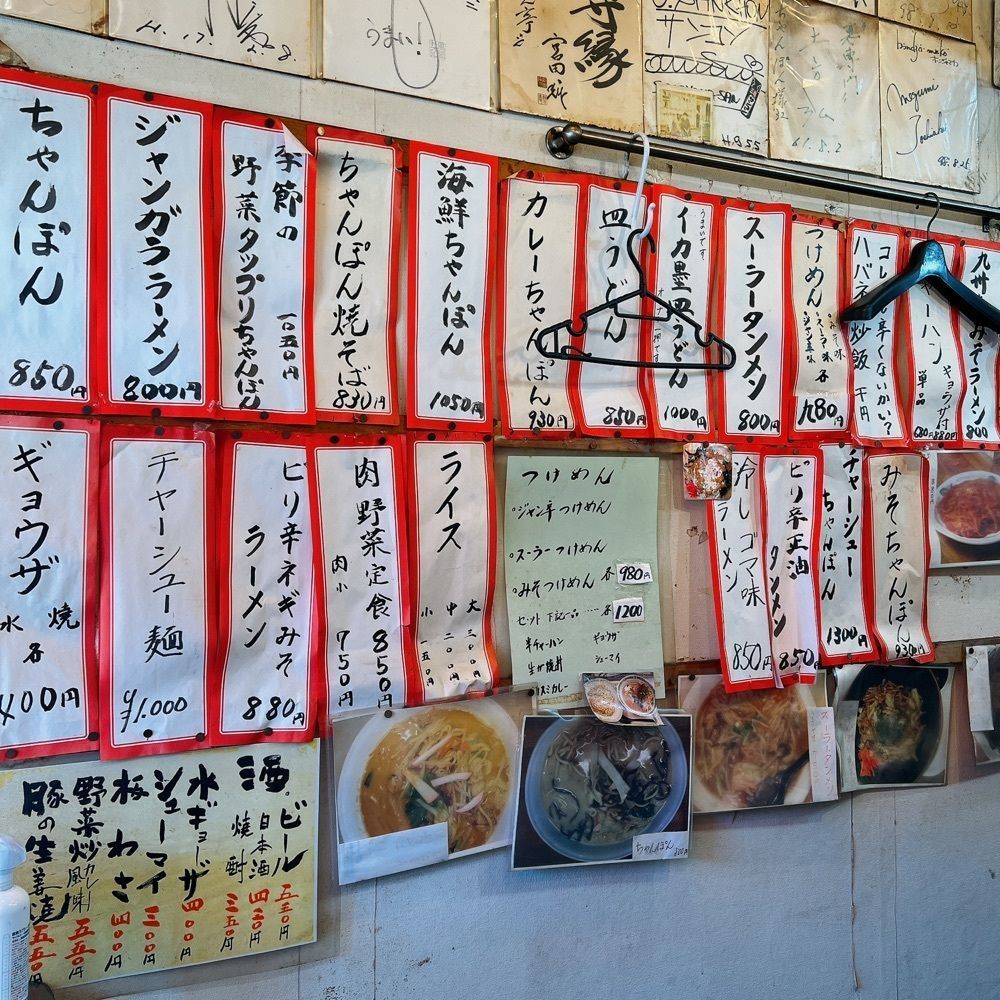 うまい!
サンコン
Megumi
ちゃんぽん
850円
ジャンガララーメン
800円
季節の
野菜タップリちゃんぽん
一〇五〇円
ちゃんぽん焼そば
830円
海鮮ちゃんぽん
1050円
カレーちゃんぽん
930円
皿うどん
850円
うまいです。
イカ墨皿うどん
1000円
スーラータンメン
800円
つけめん
980円
コレ辛くないかい?
ハバネロ炒飯 千円
ギョウザ付
単品
680円 880円
九州みそラーメン
800
ギョウザ
焼
水
各
400円
チャーシュー麺
¥1.000
ピリ辛ネギみそ
ラーメン
880円
肉野菜定食 850円
肉小 750円
ライス
大 三〇〇円
中 二〇〇円
小 一五〇円
つけめん
・ジャン辛つけめん
・スーラーつけめん
・みそつけめん 各 980円
セット 下記一品 …… 各 1200
半チャーハン ギョウザ
シューマイ
冷しゴマ味
ラーメン
850円
ピリ辛正油
タンメン
850円
チャーシュー
ちゃんぽん
1300円
みそちゃんぽん
930円
酒。
ビール 五五〇円
日本酒 四三〇円
焼酎 三五〇円
水ギョーザ 四〇〇円
シューマイ 三〇〇円
板わさ 四〇〇円
野菜炒 カレー風味 五五〇円
豚の生姜焼 五五〇円
ちゃんぽん